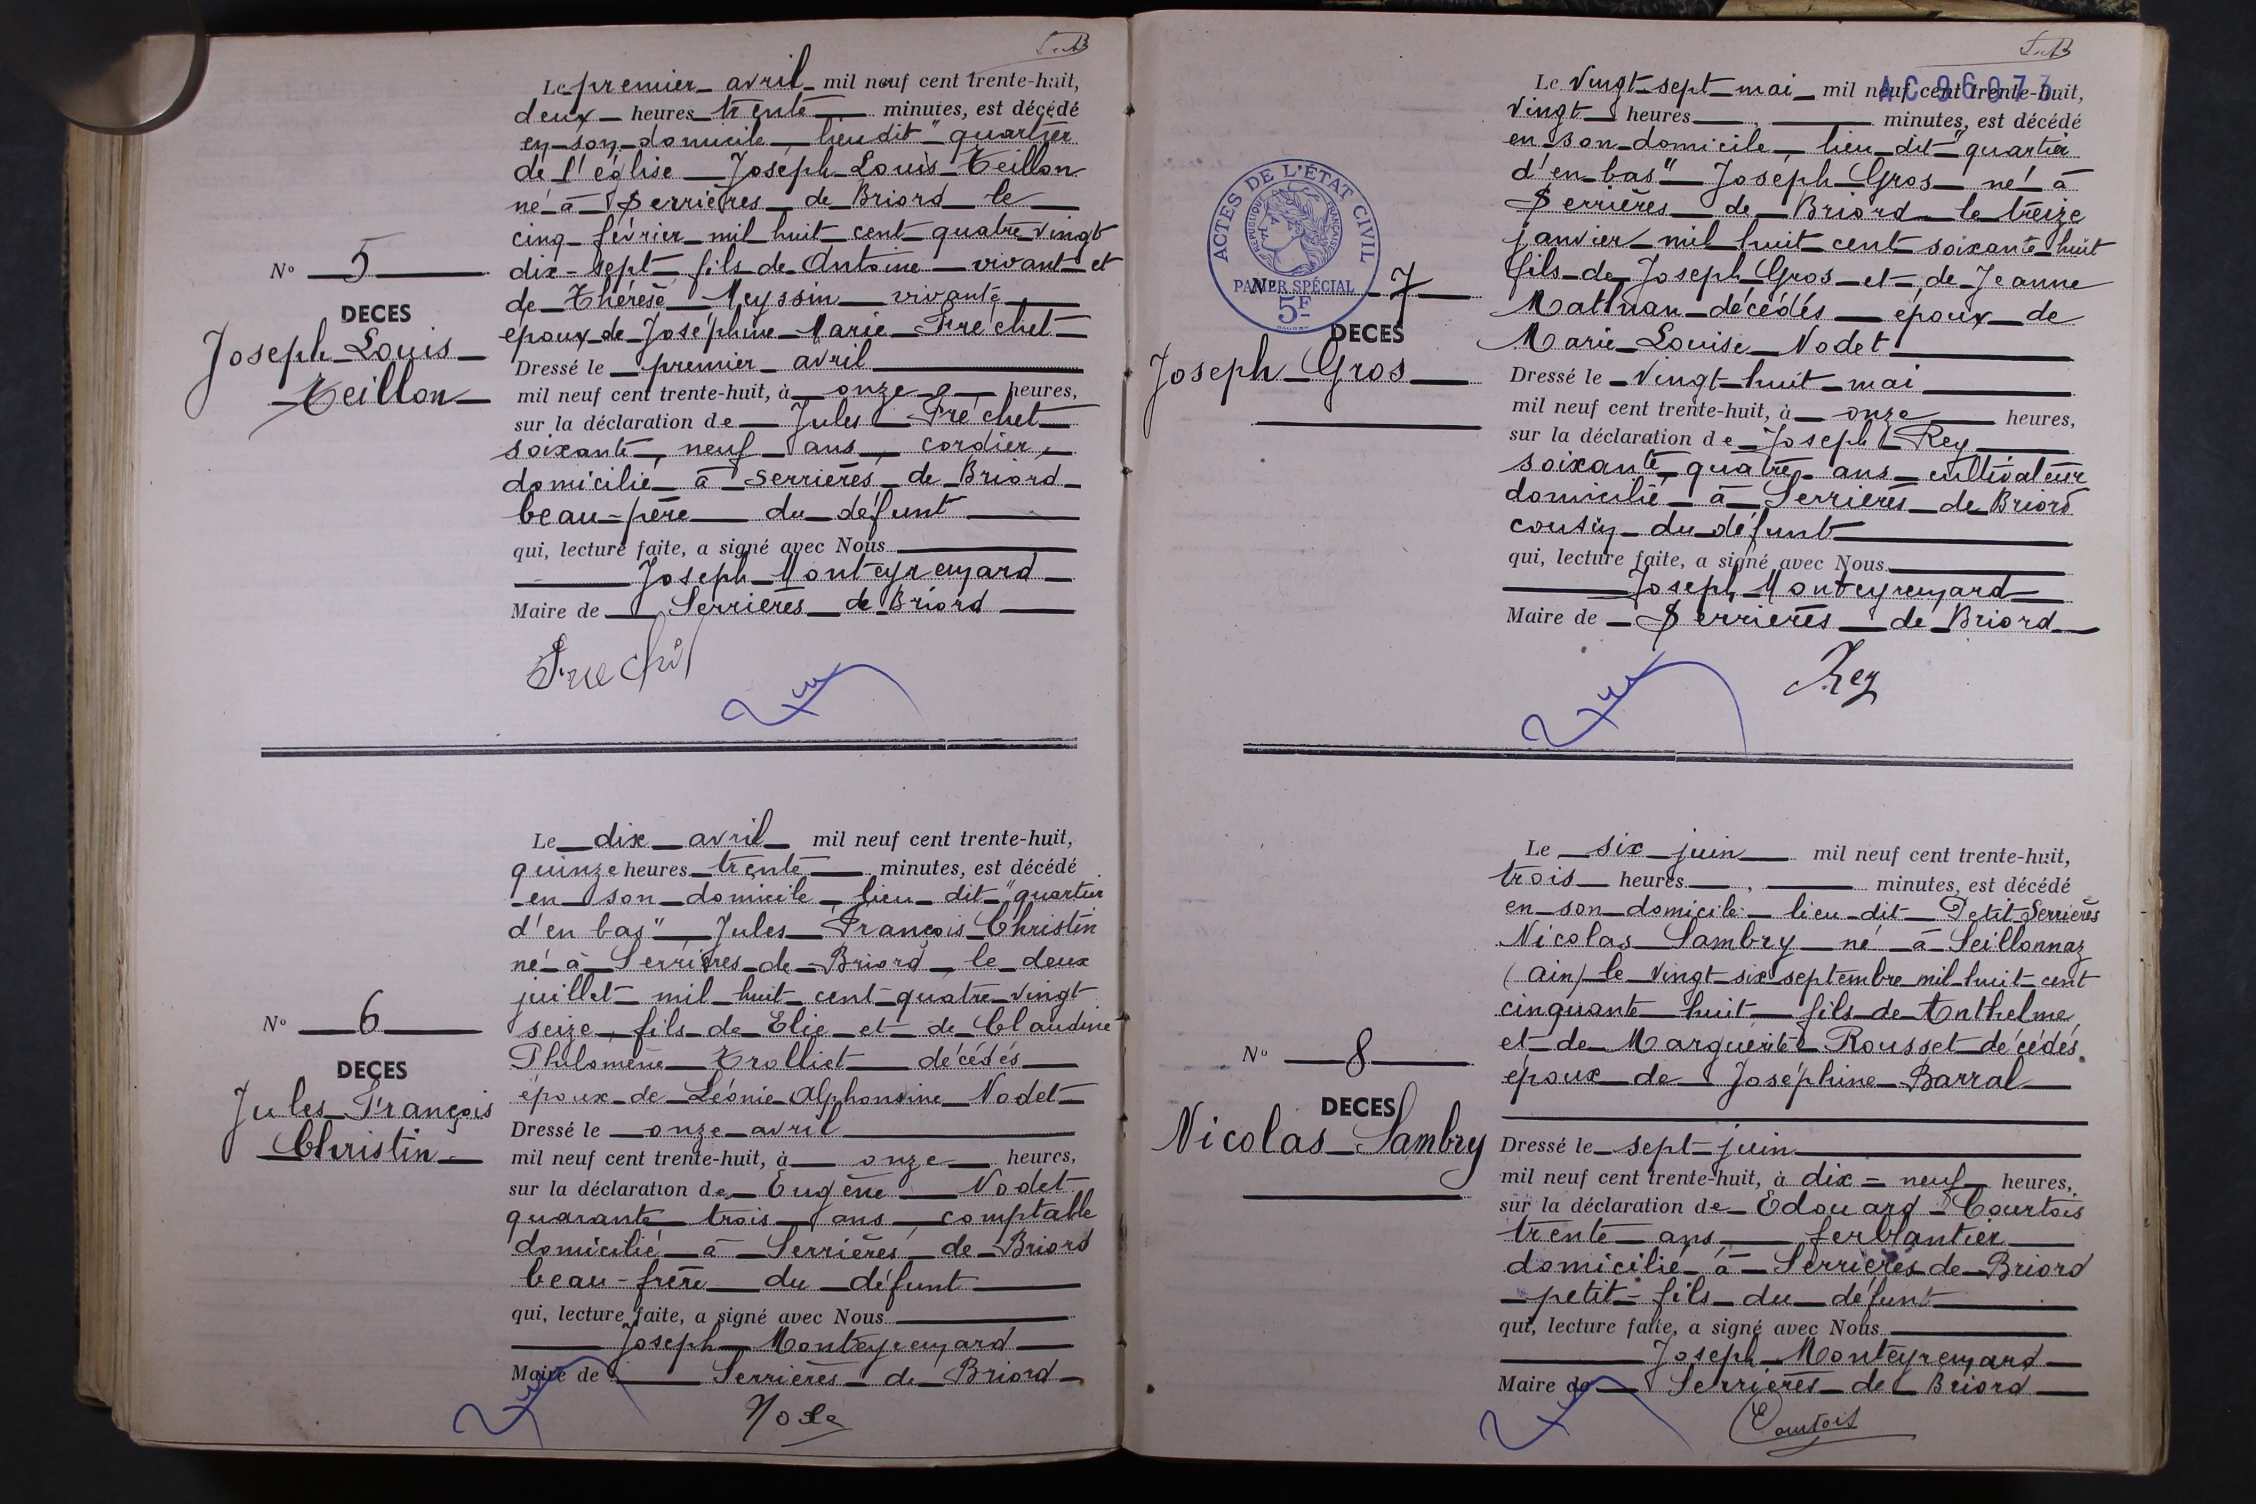 Le premier avril mil neuf cent trente-huit,
deux heures trente minutes, est décédé
en son domicile lieu dit "quartier
de l'église Joseph Louis Teillon
né à Serrières de Briord le
cinq février mil huit cent quatre vingt
dix-sept fils de Antoine vivant et
de Thérèse Meyssin vivante
époux de Joséphine Marie Fréchet
Dressé le premier avril
mil neuf cent trente-huit, à onze heures,
sur la déclaration de Jules Fréchet
soixante neuf ans, cordier,
domicilié à Serrières de Briord
beau-père du défunt
qui, lecture faite, a signé avec Nous
Joseph Monteyremard
Maire de Serrières de Briord
N° 5
DECES
Joseph Louis
Teillon
Le dix avril mil neuf cent trente-huit,
quinze heures trente minutes, est décédé
en son domicile lieu dit "quartier
d'en bas" Jules François Christin
né à Serrières de Briord le deux
juillet mil huit cent quatre-vingt
seize, fils de Elie et de Claudine
Philomène Trolliet décédés
époux de Léonie Alphonsine Nodet
Dressé le onze avril
mil neuf cent trente-huit, à onze heures,
sur la déclaration de Eugène Nodet
quarante trois ans, comptable
domicilié à Serrières de Briord
beau-frère du défunt
qui, lecture faite, a signé avec Nous
Joseph Monteyremard
Maire de Serrières de Briord
N° 6
DECES
Jules François
Christin
AC 96073
Le vingt-sept mai mil neuf cent trente-huit,
vingt heures, minutes, est décédé
en son domicile, lieu dit "quartier
d'en bas" Joseph Gros né à
Serrières de Briord le treize
janvier mil huit cent soixante huit
fils de Joseph Gros et de Jeanne
Mathan décédés époux de
Marie Louise Nodet
Dressé le vingt-huit mai
mil neuf cent trente-huit, à onze heures,
sur la déclaration de Joseph Rey
soixante quatre ans cultivateur
domicilié à Serrières de Briord
cousin du défunt
qui, lecture faite, a signé avec Nous
Joseph Monteyremard
Maire de Serrières de Briord
Rey
ACTES DE L'ÉTAT CIVIL
RÉPUBLIQUE FRANÇAISE
PAPIER SPÉCIAL
5F
N° 7
DECES
Joseph Gros
Le six juin mil neuf cent trente-huit,
trois heures, minutes, est décédé
en son domicile lieu dit Petit Serrières
Nicolas Sambry né à Seillonnaz
(Ain) le vingt six septembre mil huit cent
cinquante huit fils de Anthelme
et de Marguerite Rousset décédés
époux de Joséphine Barral
Dressé le sept juin
mil neuf cent trente-huit, à dix-neuf heures,
sur la déclaration de Edouard Courtois
trente ans ferblantier
domicilié à Serrières de Briord
petit-fils du défunt
qui, lecture faite, a signé avec Nous
Joseph Monteyremard
Maire de Serrières de Briord
Courtois
N° 8
DECES
Nicolas Sambry